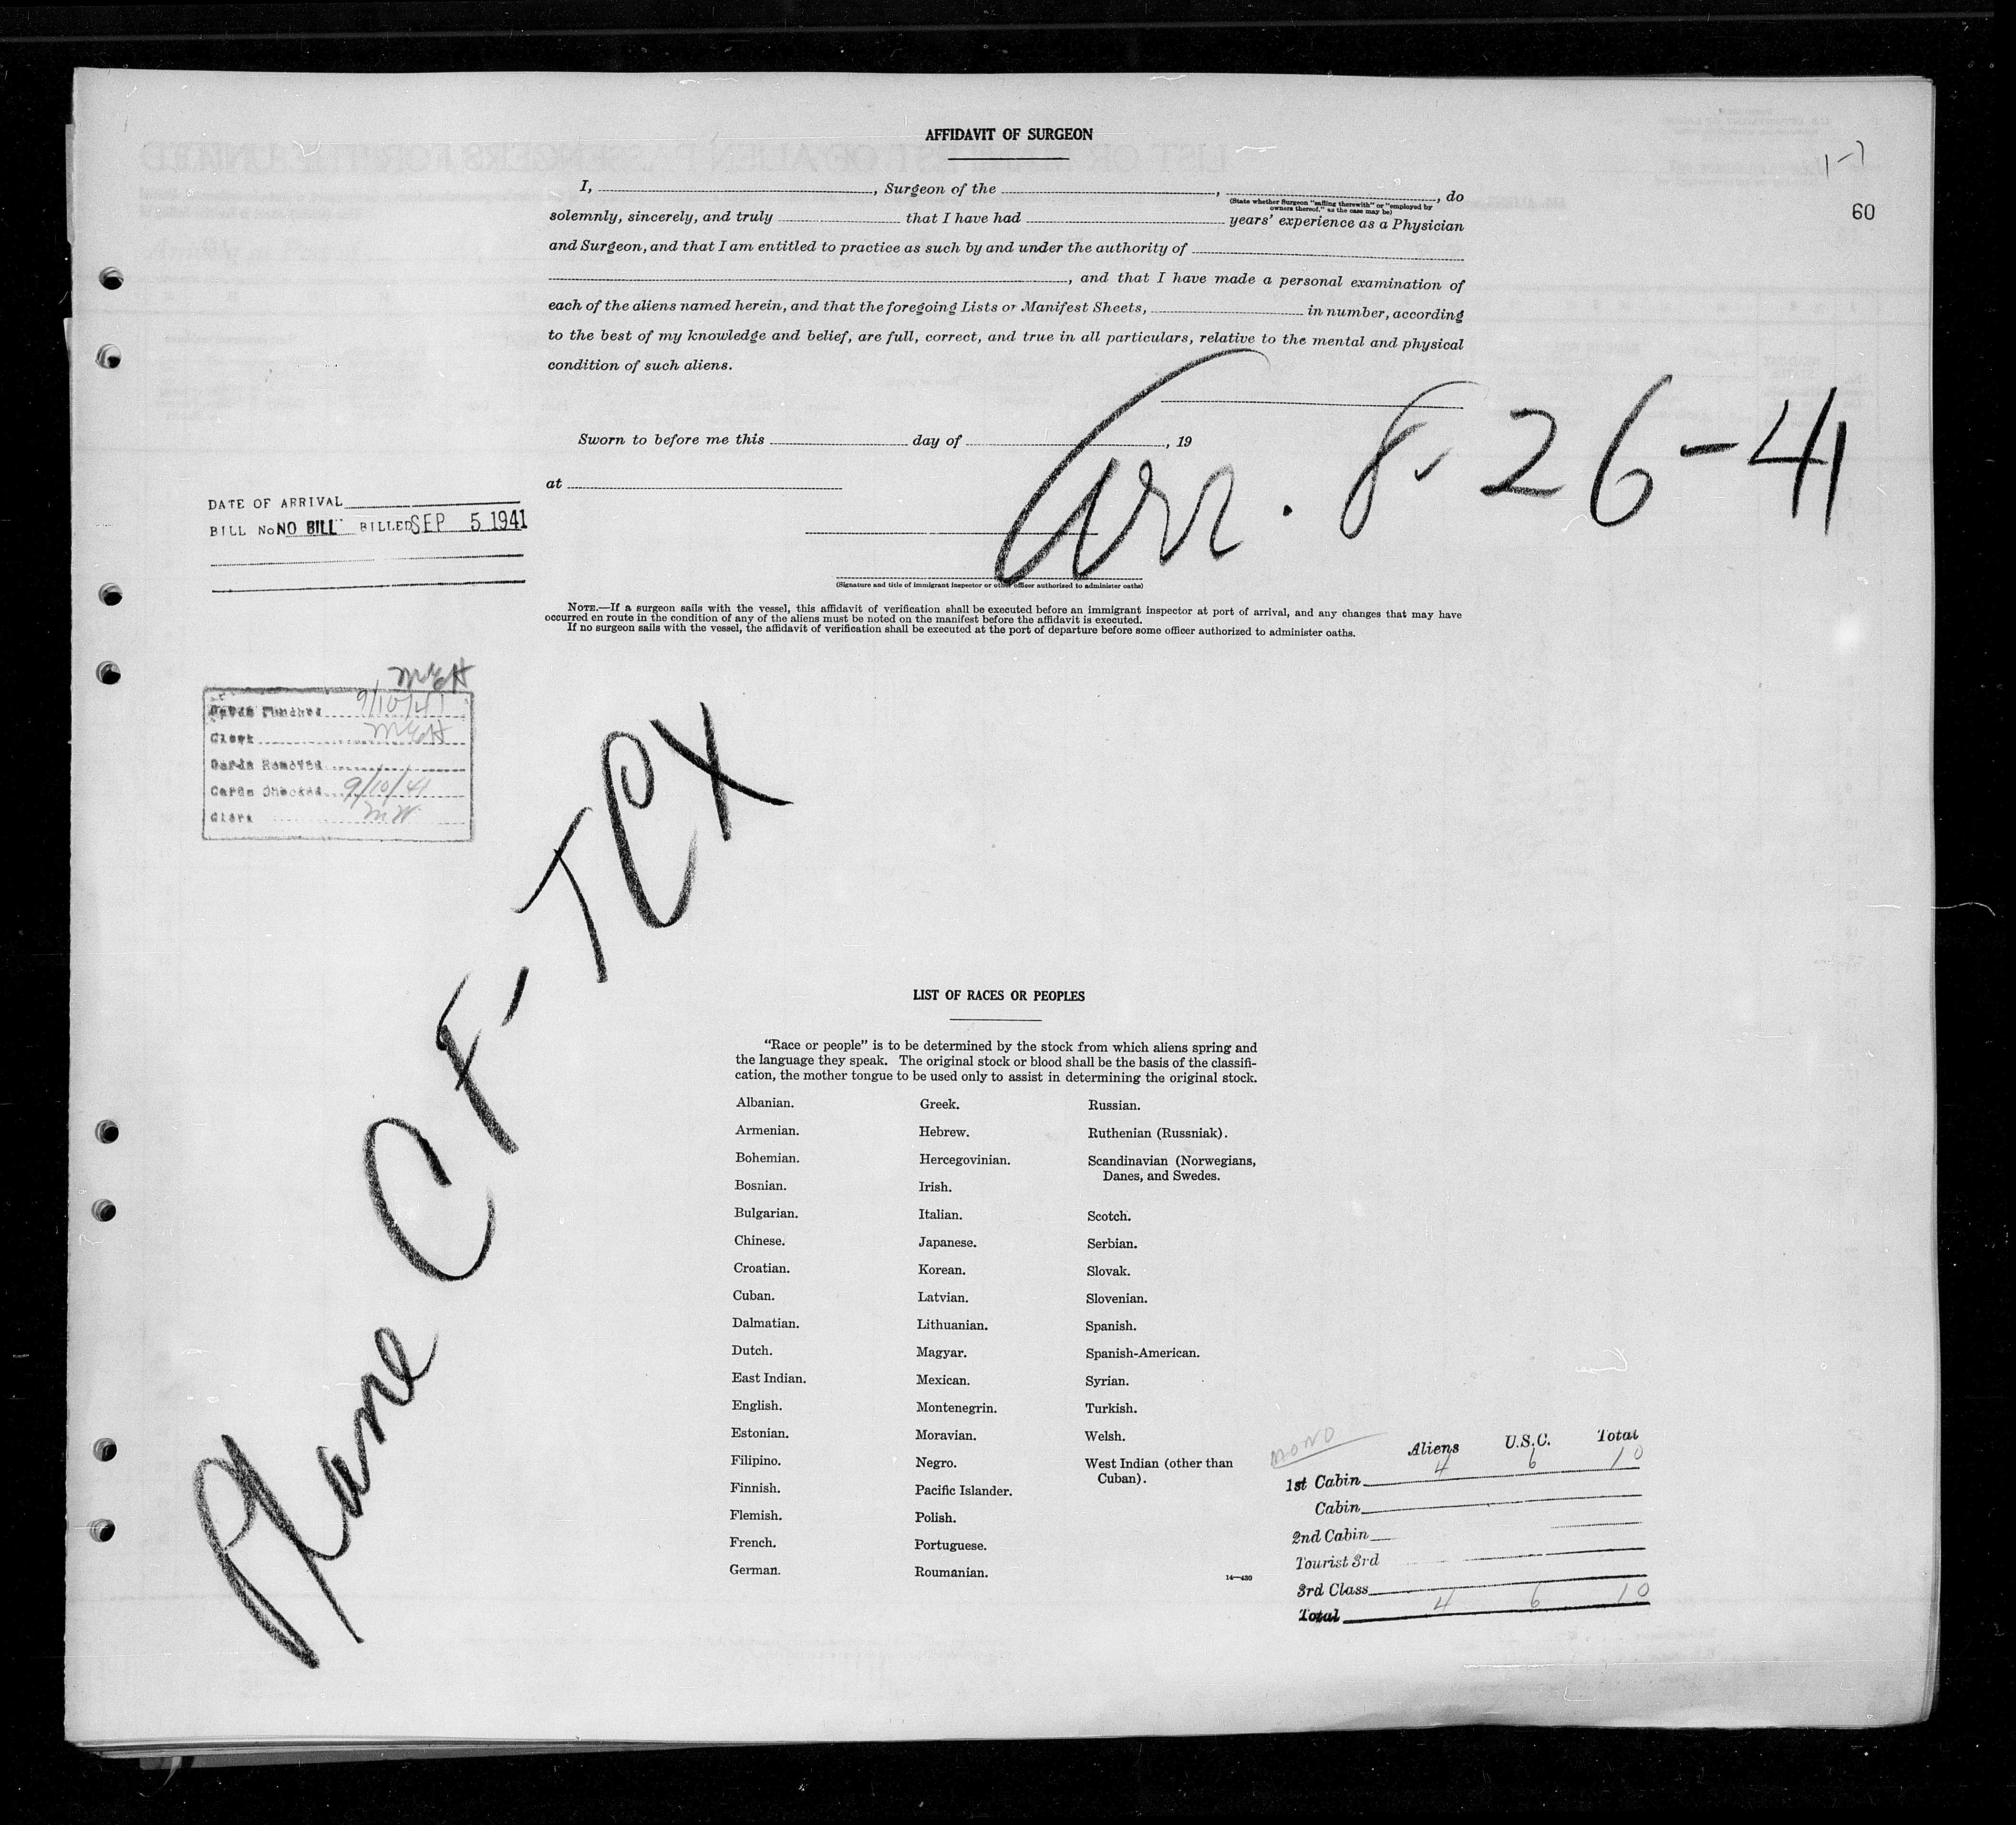 AFFIDAVIT OF SURGEON
1-7
60
I, , Surgeon of the , , do
(State whether Surgeon "sailing therewith" or "employed by
owners thereof," as the case may be)
solemnly, sincerely, and truly that I have had years' experience as a Physician
and Surgeon, and that I am entitled to practice as such by and under the authority of
, and that I have made a personal examination of
each of the aliens named herein, and that the foregoing Lists or Manifest Sheets, in number, according
to the best of my knowledge and belief, are full, correct, and true in all particulars, relative to the mental and physical
condition of such aliens.
Sworn to before me this day of , 19
at
Arr. 8-26-41
DATE OF ARRIVAL
BILL No NO BILL BILLED SEP 5 1941
(Signature and title of immigrant inspector or other officer authorized to administer oaths)
NOTE.—If a surgeon sails with the vessel, this affidavit of verification shall be executed before an immigrant inspector at port of arrival, and any changes that may have
occurred en route in the condition of any of the aliens must be noted on the manifest before the affidavit is executed.
If no surgeon sails with the vessel, the affidavit of verification shall be executed at the port of departure before some officer authorized to administer oaths.
MEH
Cards Punched 9/10/41
Clerk MEH
Cards Removed
Cards Checked 9/10/41
Clerk MW
Plane CF-TCX
LIST OF RACES OR PEOPLES
"Race or people" is to be determined by the stock from which aliens spring and
the language they speak. The original stock or blood shall be the basis of the classifi-
cation, the mother tongue to be used only to assist in determining the original stock.
Albanian.
Armenian.
Bohemian.
Bosnian.
Bulgarian.
Chinese.
Croatian.
Cuban.
Dalmatian.
Dutch.
East Indian.
English.
Estonian.
Filipino.
Finnish.
Flemish.
French.
German.
Greek.
Hebrew.
Hercegovinian.
Irish.
Italian.
Japanese.
Korean.
Latvian.
Lithuanian.
Magyar.
Mexican.
Montenegrin.
Moravian.
Negro.
Pacific Islander.
Polish.
Portuguese.
Roumanian.
Russian.
Ruthenian (Russniak).
Scandinavian (Norwegians,
Danes, and Swedes.
Scotch.
Serbian.
Slovak.
Slovenian.
Spanish.
Spanish-American.
Syrian.
Turkish.
Welsh.
West Indian (other than
Cuban).
14—430
MONO
Aliens U.S.C. Total
1st Cabin 4 6 10
Cabin
2nd Cabin
Tourist 3rd
3rd Class
Total 4 6 10